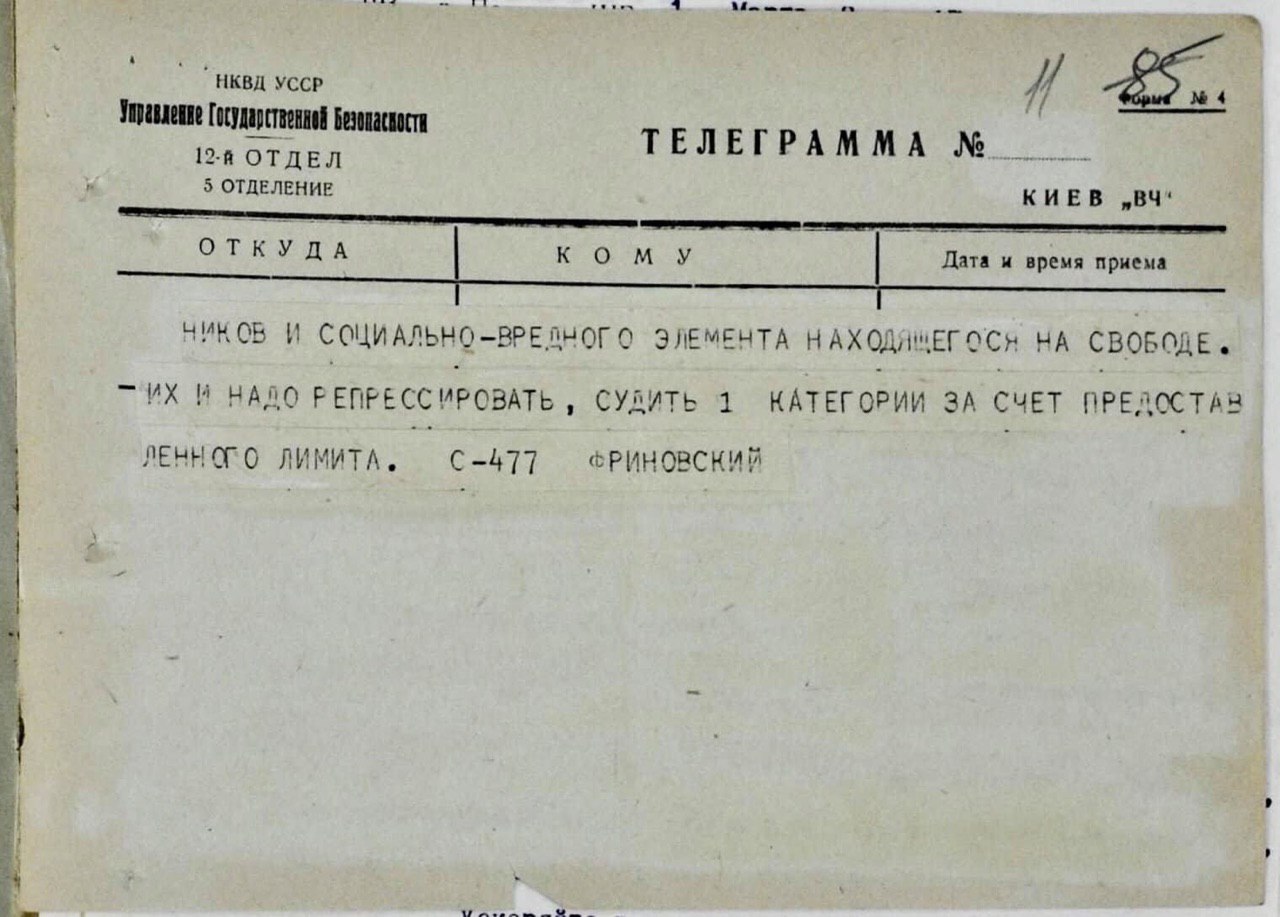 11 85
НКВД УССР
Форма № 4
Управление Государственной Безопасности
12-й ОТДЕЛ
ТЕЛЕГРАММА №
5 ОТДЕЛЕНИЕ
КИЕВ „ВЧ“
ОТКУДА КОМУ Дата и время приема
НИКОВ И СОЦИАЛЬНО-ВРЕДНОГО ЭЛЕМЕНТА НАХОДЯЩЕГОСЯ НА СВОБОДЕ.
-ИХ И НАДО РЕПРЕССИРОВАТЬ, СУДИТЬ 1 КАТЕГОРИИ ЗА СЧЕТ ПРЕДОСТАВ
ЛЕННОГО ЛИМИТА. С-477 ФРИНОВСКИЙ